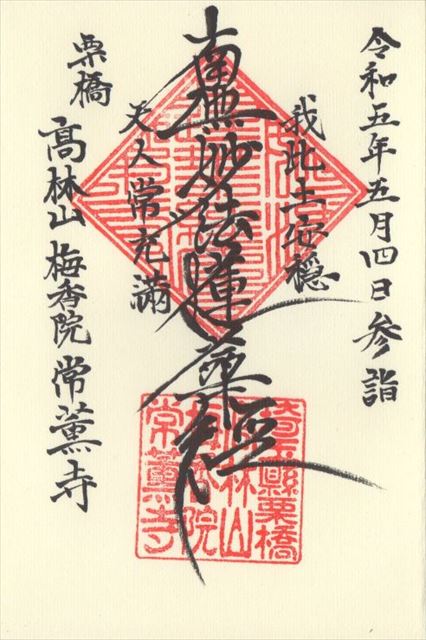 令和五年五月四日参詣
我此土安穏
南無妙法蓮華経
天人常充満
栗橋
高林山 梅香院 常薫寺
埼玉縣栗橋
高林山
梅香院
常薫寺